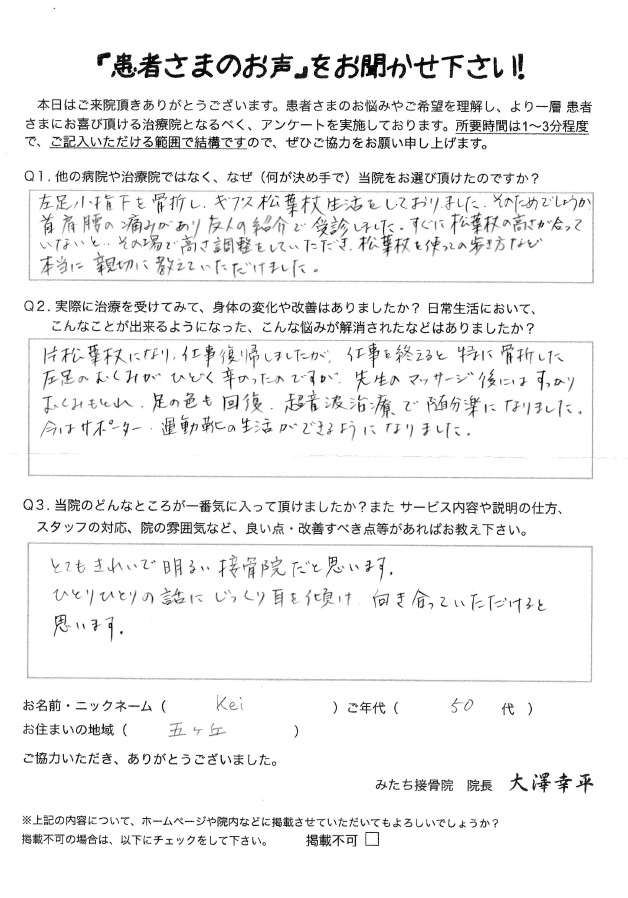 『患者さまのお声』をお聞かせ下さい!
本日はご来院頂きありがとうございます。患者さまのお悩みやご希望を理解し、より一層 患者
さまにお喜び頂ける治療院となるべく、アンケートを実施しております。所要時間は1〜3分程度
で、ご記入いただける範囲で結構ですので、ぜひご協力をお願い申し上げます。
Q1. 他の病院や治療院ではなく、なぜ（何が決め手で）当院をお選び頂けたのですか？
左足小指下を骨折し、ギプス松葉杖生活をしておりました。そのためでしょうか
首肩腰の痛みがあり友人の紹介で受診しました。すぐに松葉杖の高さが合って
いないと、その場で高さ調整をしていただき、松葉杖を使っての歩き方など
本当に親切に教えていただけました。
Q2. 実際に治療を受けてみて、身体の変化や改善はありましたか？ 日常生活において、
こんなことが出来るようになった、こんな悩みが解消されたなどはありましたか？
片松葉杖になり、仕事復帰しましたが、仕事を終えると特に骨折した
左足のむくみがひどく辛かったのですが、先生のマッサージ後にはすっかり
むくみもとれ、足の色も回復、超音波治療で随分楽になりました。
今はサポーター、運動靴の生活ができるようになりました。
Q3. 当院のどんなところが一番気に入って頂けましたか？また サービス内容や説明の仕方、
スタッフの対応、院の雰囲気など、良い点・改善すべき点等があればお教え下さい。
とてもきれいで明るい接骨院だと思います。
ひとりひとりの話にじっくり耳を傾け、向き合っていただけると
思います。
お名前・ニックネーム（ Kei ）ご年代（ 50 代 ）
お住まいの地域（ 五ヶ丘 ）
ご協力いただき、ありがとうございました。
みたち接骨院 院長 大澤幸平
※上記の内容について、ホームページや院内などに掲載させていただいてもよろしいでしょうか？
掲載不可の場合は、以下にチェックをして下さい。 掲載不可 □